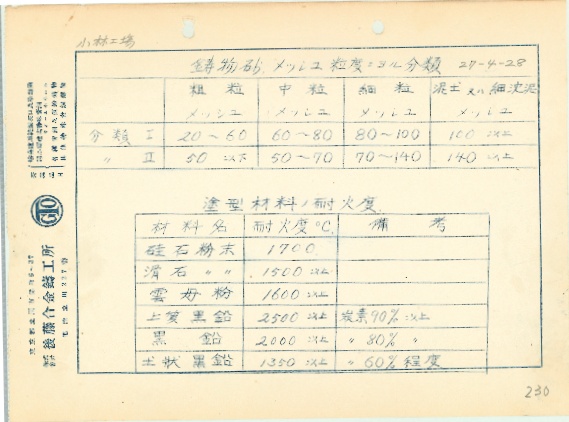 小林工場
鋳物砂、メッシュ粒度ニヨル分類 27-4-28
粗粒 中粒 細粒 泥土又ハ細沈泥
メッシュ メッシュ メッシュ メッシュ
分類 I 20～60 60～80 80～100 100以上
〃 II 50以下 50～70 70～140 140以上
塗型材料ノ耐火度
材料名 耐火度℃ 備考
硅石粉末 1700
滑石〃〃 1500以上
雲母粉 1600以上
上質黒鉛 2500以上 炭素90%以上
黒鉛 2000以上 〃80%〃
土状黒鉛 1350以上 〃60%程度
後藤合金鋳工所
230